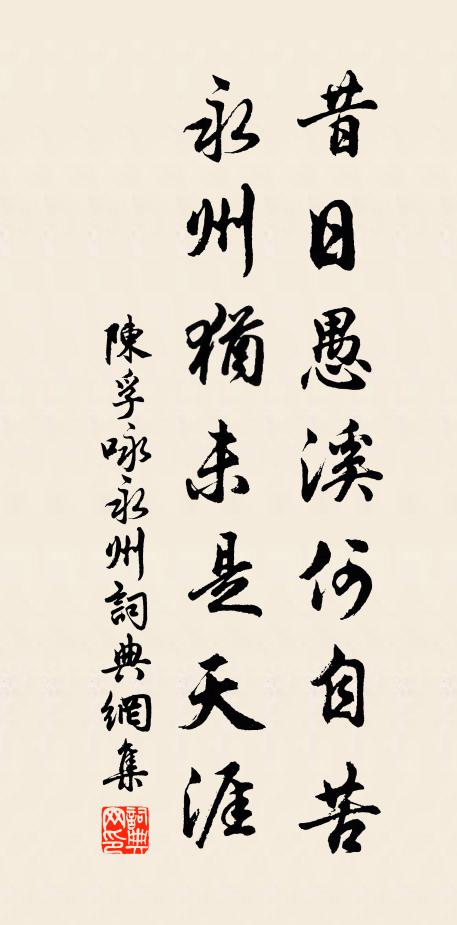 昔日愚溪何自苦
永州猶未是天涯
陳孚咏永州詞典網集
詞典网印